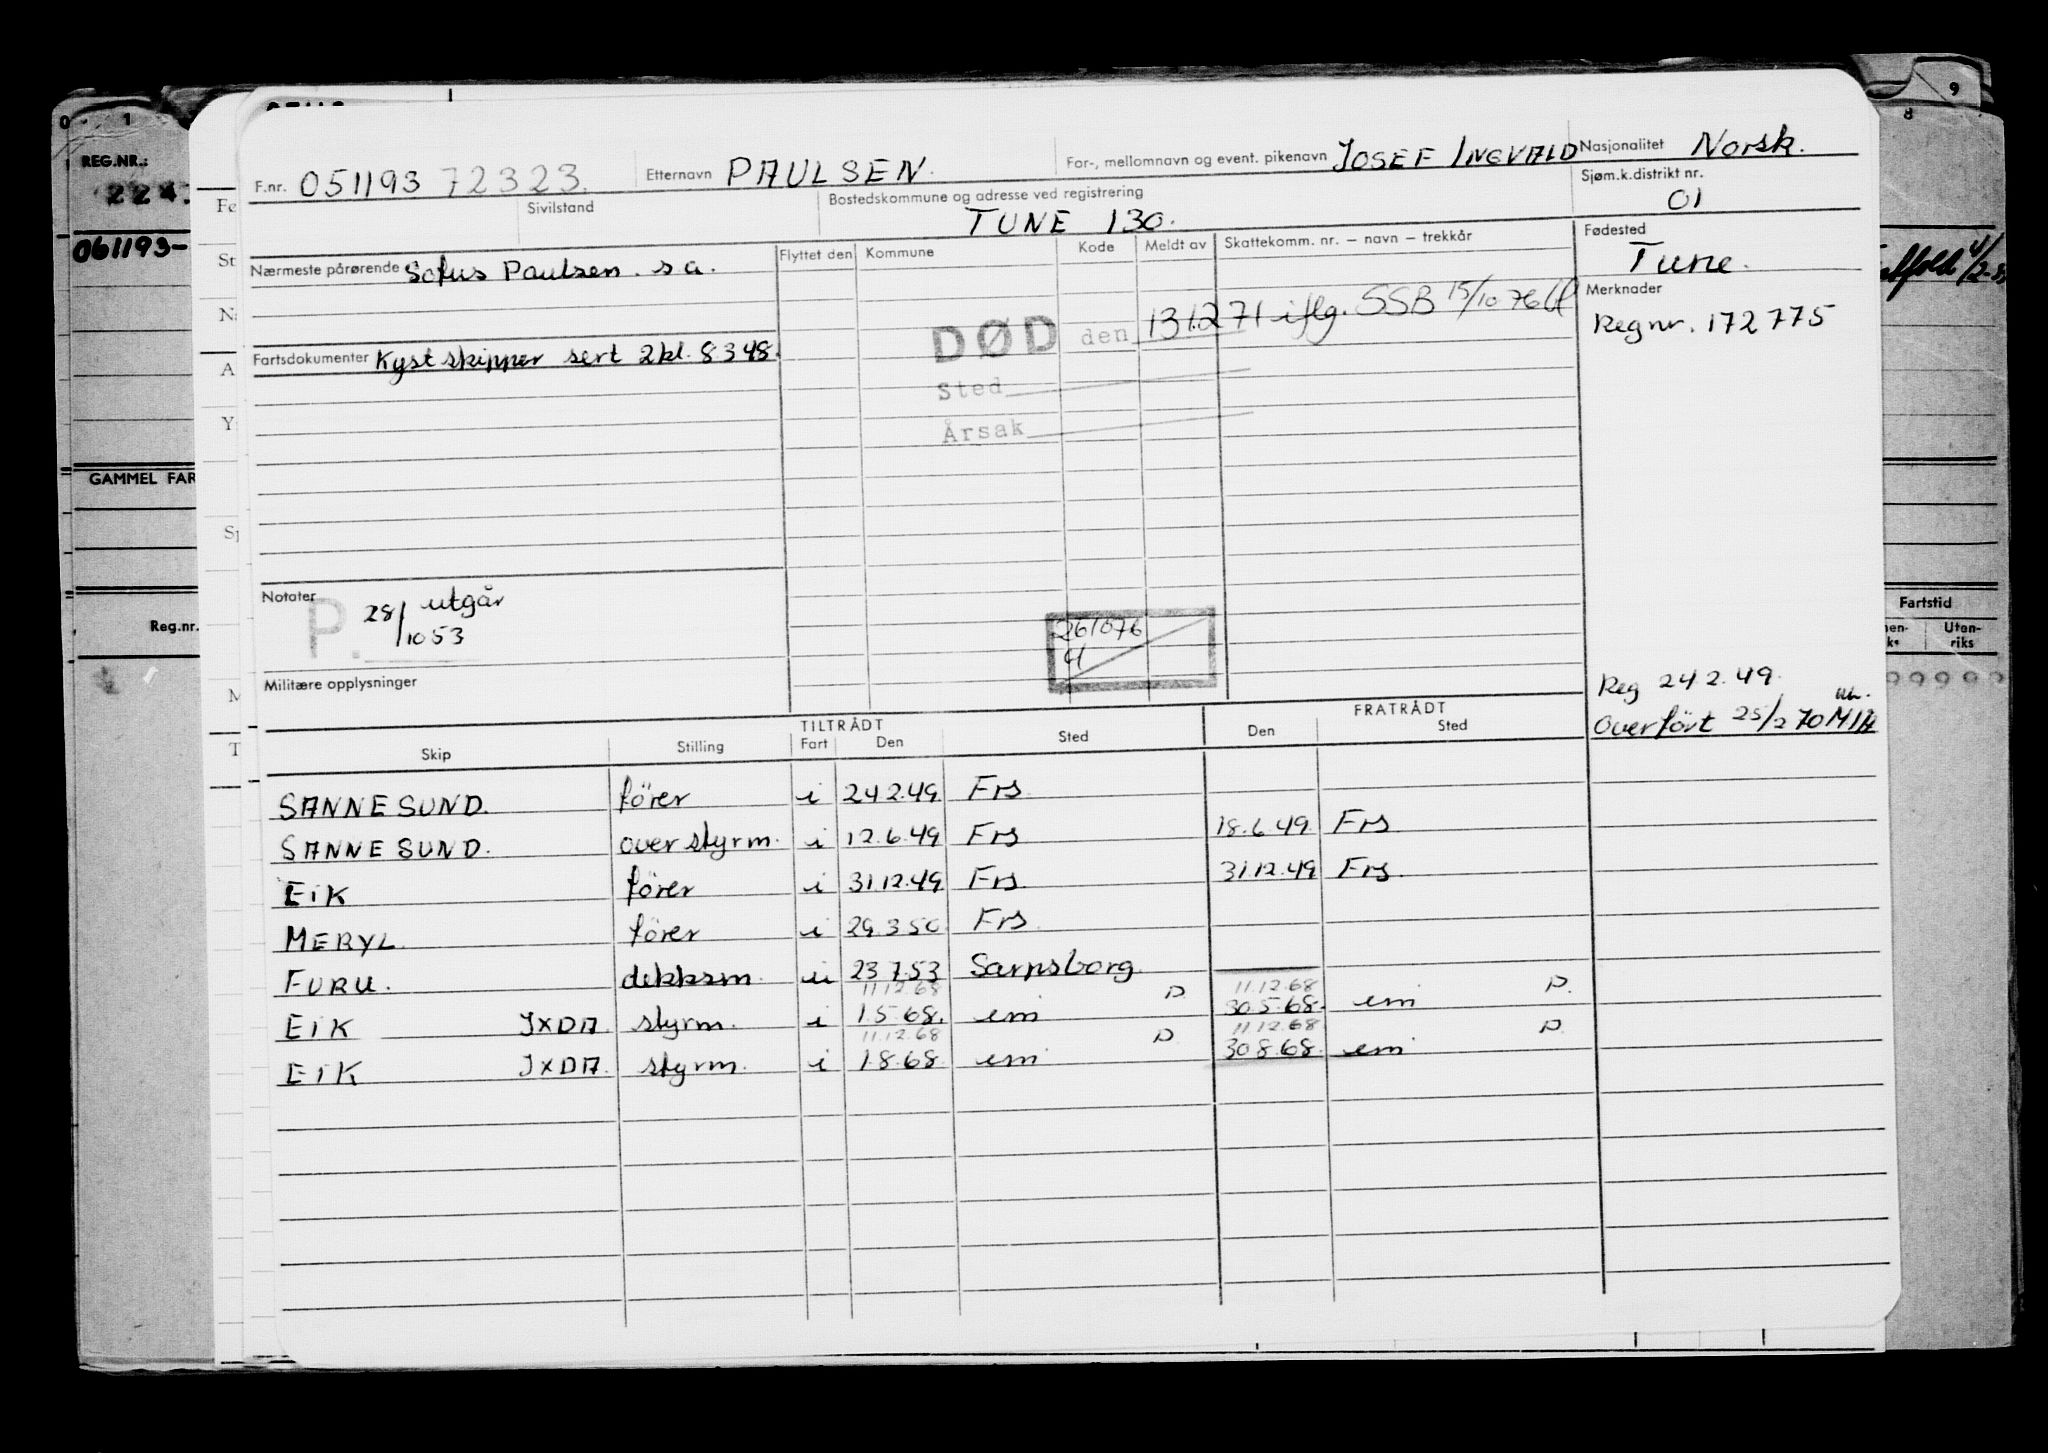 0 1
9
8
REG.NR.:
224
061193-
GAMMEL FAR
Reg.nr.
Fartstid
Uten-
riks
99999
F.nr. 051193 72323. Etternavn PAULSEN. For-, mellomnavn og event. pikenavn JOSEF INGVALD Nasjonalitet Norsk.
Sivilstand Bostedskommune og adresse ved registrering TUNE 130. Sjøm.k.distrikt nr. 01
Nærmeste pårørende Sofus Paulsen. s a. Flyttet den Kommune Kode Meldt av Skattekomm. nr. – navn – trekkår Fødested Tune.
DØD den 131271 iflg. SSB 15/10 76
Sted
Årsak
Merknader
Regnr. 172775
Fartsdokumenter Kystskipper sert 2kl. 8348.
Notater
P. 28/1053 utgår
261076
Militære opplysninger
Reg 24 2.49.
Overført 25/2 70
TILTRÅDT FRATRÅDT
Skip Stilling Fart Den Sted Den Sted
SANNESUND. förer i 24 2.49 Frs
SANNESUND. overstyrm. i 12.6.49 Frs 18.6.49 Frs
EIK förer i 31.12.49 Frs 31.12.49 Frs
MERYL förer i 29.3 50 Frs
FURU. dekksm. ii 23 7.53 Sarpsborg
11.12.68 P. 11.12.68 P.
EIK JXDA styrm. i 1.5.68. emi 30.5.68. emi
11.12.68 P 11.12.68 P
EIK JXDA. styrm. i 1.8.68 emi 30 8.68. emi